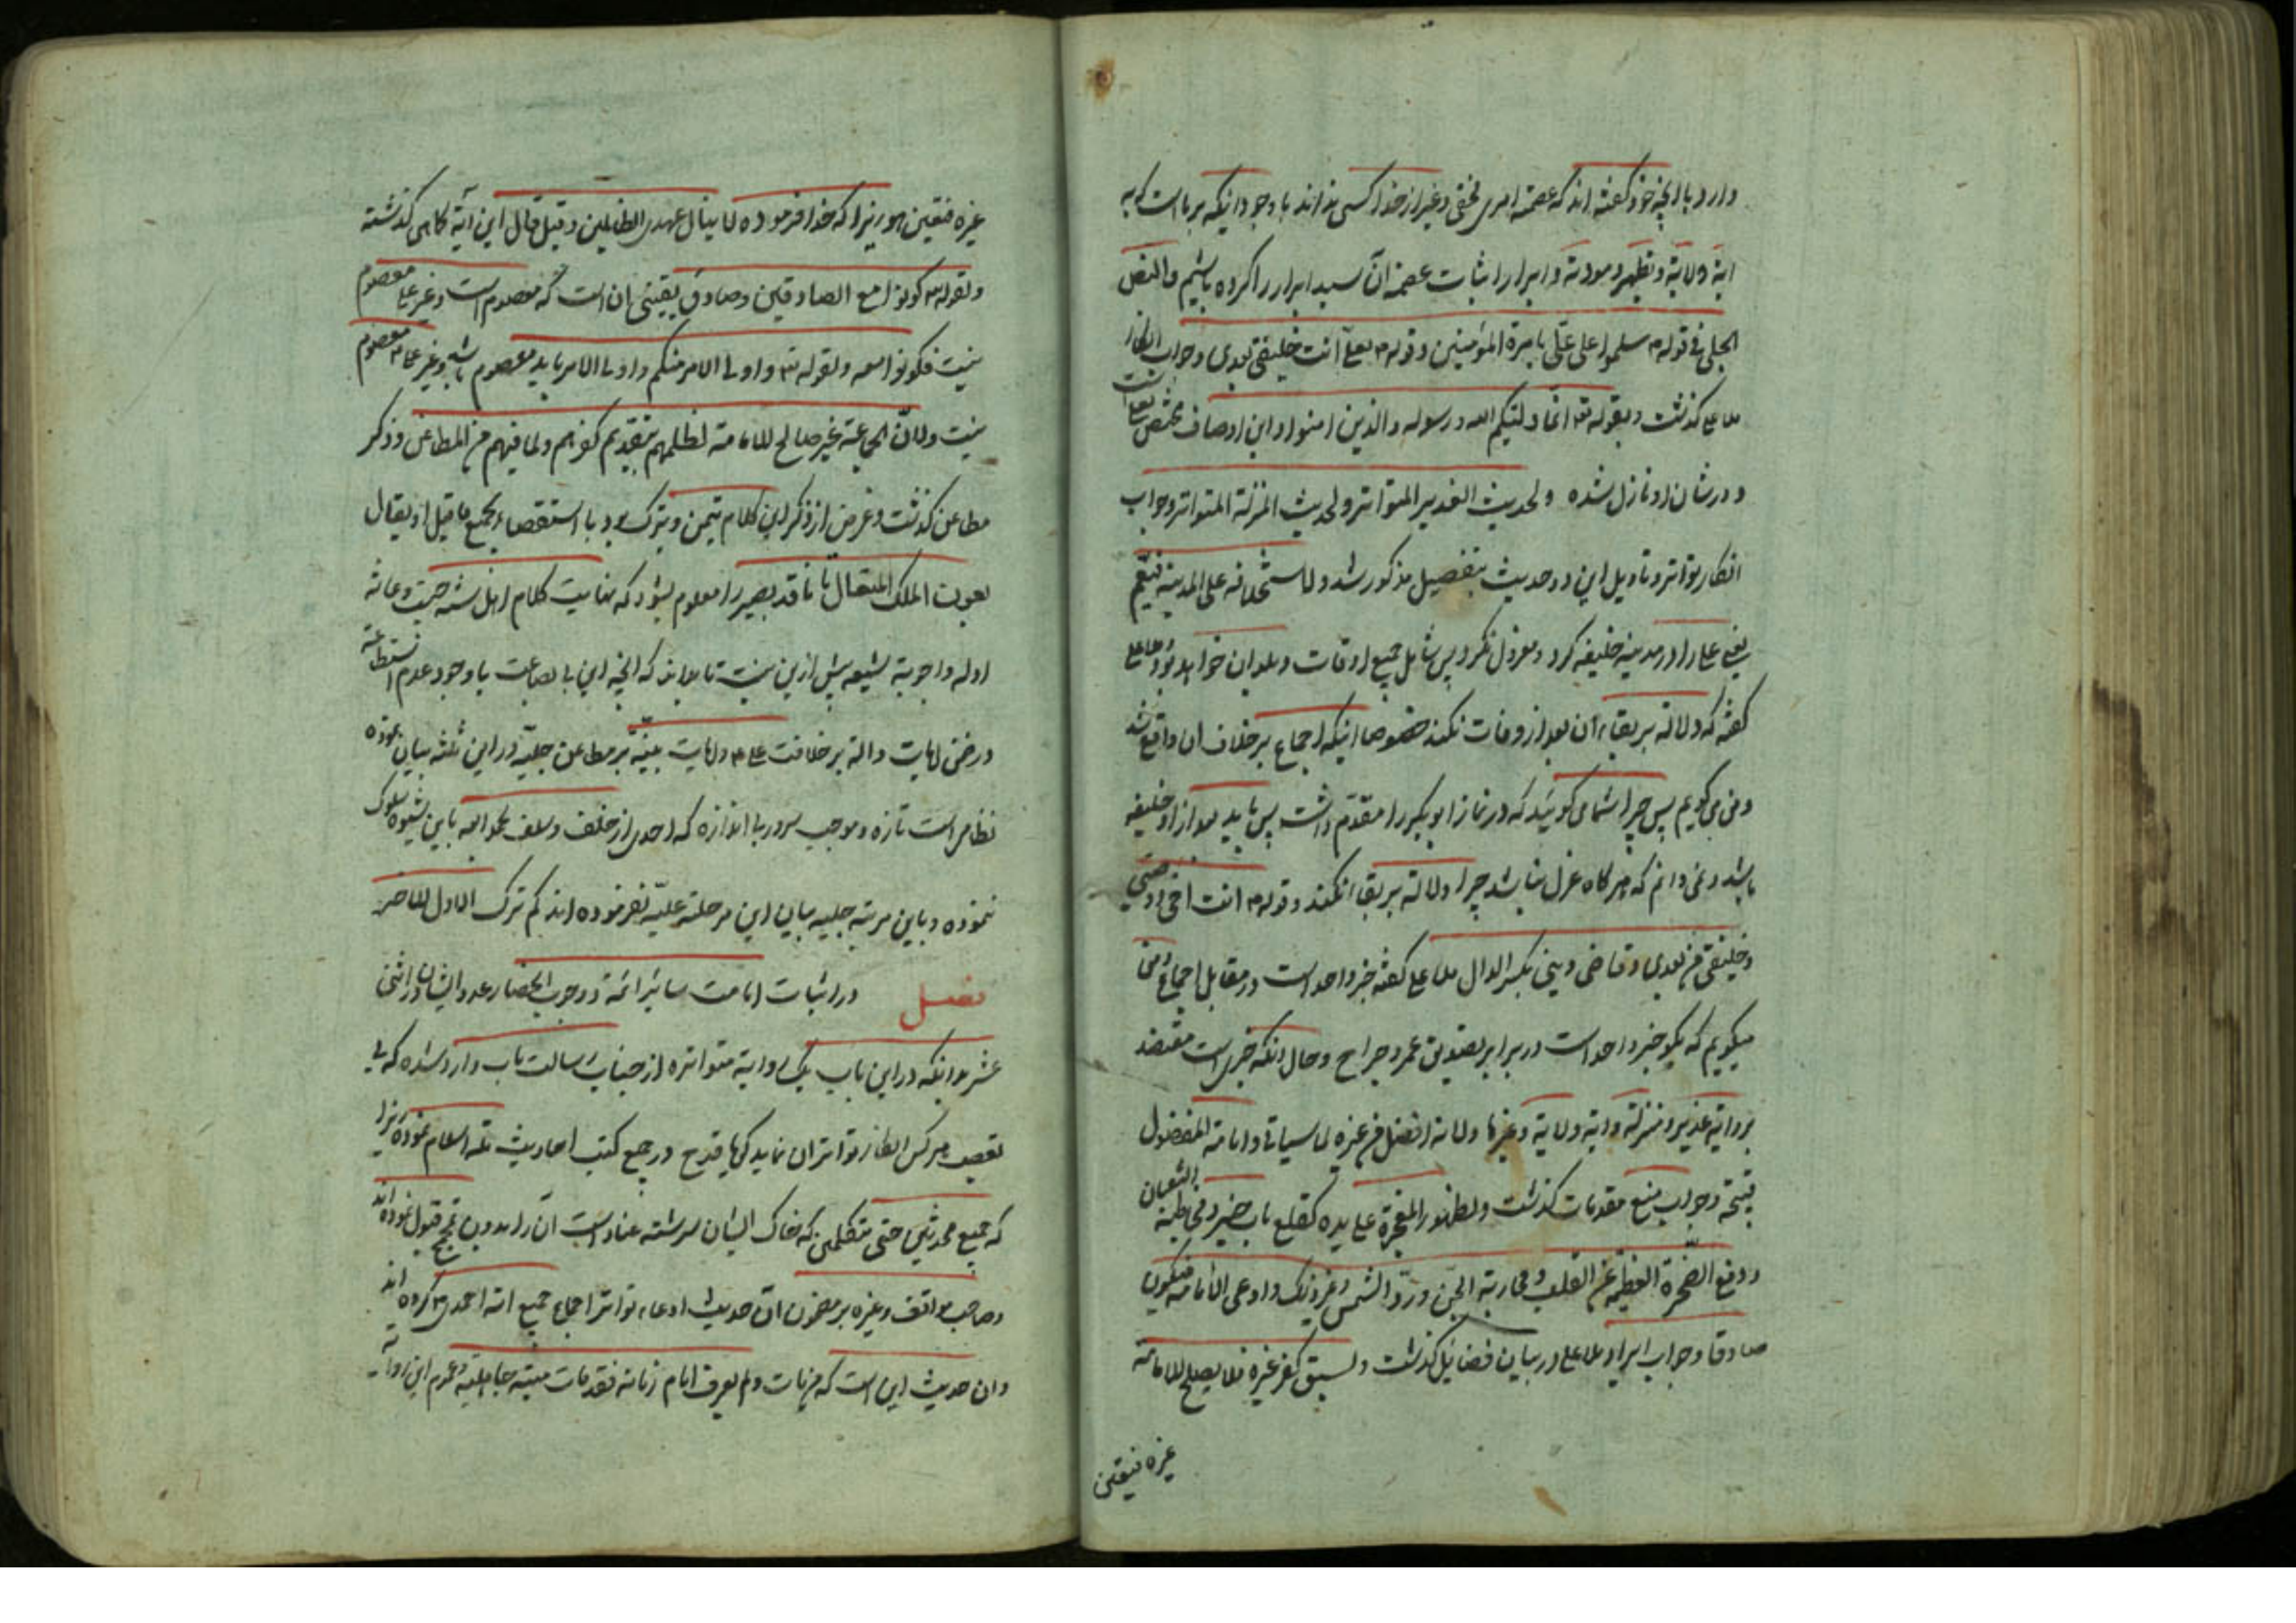 دارد با آنچه خود گفته اند که عصمة امری مخفی و غیر از خدا کسی نداند با وجود اینکه بر ما است که به
ایة ولایة و تطهیر و مودة و ابرار اثبات عصمة آن سید ابرار را کرده باشیم والنص
الجلی فی قوله سلموا علی علی بامرة المؤمنین و قوله انت خلیفتی بعدی و جواب انکار
ملا علی گذشت و بقوله تع انما ولیکم الله و رسوله والذین امنوا و این اوصاف مختص بعلی است
و در شان او نازل شده ولحدیث الغدیر المتواتر ولحدیث المنزلة المتواتر و جواب
انکار تواتر و تاویل این دو حدیث بتفصیل مذکور شد ولاستخلافه علی المدینة فیعم
یعنی علی را در مدینه خلیفه کرد و معزول نکرد پس شامل جمیع اوقات و بلدان خواهد بود ملا علی
گفته که دلالة بر بقاء آن بعد از وفات نکند خصوصا اینکه اجماع بر خلاف ان واقع شد
و من می گویم پس چرا شما می گوئید که در نماز ابو بکر را مقدم داشت پس باید بعد از او خلیفه
باشد و نمی دانم که هر گاه عزل نباشد چرا دلالة بر بقا نکند و قوله انت اخی و وصیی
و خلیفتی من بعدی و قاضی دینی بکسر الدال ملا علی گفته خبر واحد است در مقابل اجماع و من
میگویم که بگو خبر واحد است در برابر تصویت عمر و جراح و حال انکه خبری است معتضد
بروایة غدیر و منزلة و ایة ولایة و غیرها ولانه افضل من غیره لما سیاتی و امامة المفضول
قبیحة و جواب منع مقدمات گذشت ولظهور المعجزة علی یده کقلع باب خیبر و مخاطبة الثعبان
و رفع الصخرة العظیمة عن القلیب و محاربة الجن و رد الشمس و غیر ذلک و ادعی الامامة فیکون
صادقا و جواب ایراد ملا علی در بیان فضائل گذشت ولسبق کفر غیره فلا یصلح للامامة
غیره فتعین
غیره فتعین هو زیرا که خدا فرموده لا ینال عهدی الظالمین و قیل قال این آیة کاهی گذشته
ولقوله تع کونوا مع الصادقین و صادق یقینی ان است که معصوم است و غیر علی معصوم
نیست فکونوا معه ولقوله تع و اولی الامر منکم و اولی الامر باید معصوم باشد و غیر علی معصوم
نیست ولان الجماعة غیر صالح للامامة لظلمهم بتقدیم کفرهم ولما فیهم من المطاعن و ذکر
مطاعن گذشت و غرض از ذکر این کلام تیمن و تبرک بود با استقصاء جمیع ما قیل او یقال
بعون الملک المتعال تا ناقد بصیر را معلوم بشود که نهایت کلام اهل سنة چیست و
ادله و اجوبة شیعه بیش ازین نیست تا بداند که آنچه این بی بضاعت با وجود عدم استطاعة
در ضمن ایات دالة بر خلافت علی و ایات مبینة بر مطاعن جلیة در این ثلثه بیان نموده
نظامی است تازه و موجب سرور بی اندازه که احدی از خلف و سلف بحمد الله باین شیوه سلوک
ننموده و باین مرتبه جلیه بیان این مرحلة علیة نفرموده اند کم ترک الاول للاخر
فصل در اثبات امامت سائر ائمة و وجوب انحصار عدد ایشان در اثنی
عشر بدانکه در این باب یک روایة متواتره از جناب رسالت ماب وارد شده که بی
تعصب هرکس انکار تواتر ان نماید در جمیع کتب احادیث
که جمیع محدثین حتی متکلمین که خاک ایشان سرشته عناد است آن را بدون قبول نموده اند
و صاحب مواقف و غیره بر مضمون ان حدیث ادعاء تواتر اجماع جمیع امة احمدی کرده اند
و ان حدیث این است که من مات و لم یعرف امام زمانه فقد مات میتة جاهلیة و عموم این روایة